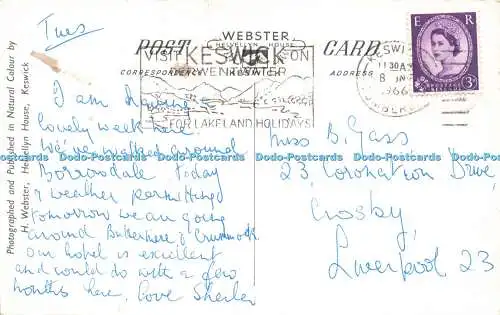 Tues
POST CARD
WEBSTER
HELVELLYN HOUSE
KESWICK
CORRESPONDENCE
ADDRESS
VISIT KESWICK ON
DERWENTWATER
FOR LAKELAND HOLIDAYS
KESWI
11 30 A
8
1966
CUMBER
E R
3D
I am having a
lovely week here
We've walked around
Borrowdale today
& weather permitting
tomorrow we are going
around Buttermere & Crummock
our hotel is excellent
and could do with a few
months here. Love Sheila
Miss B. Gass
23, Coronation Drive
Crosby,
Liverpool 23
Photographed and Published in Natural Colour by
H. Webster, Helvellyn House, Keswick
Postcards Dod-Postcards Dod-Postcards Dod-Postcards Dod-Postcards Dod-Postcards